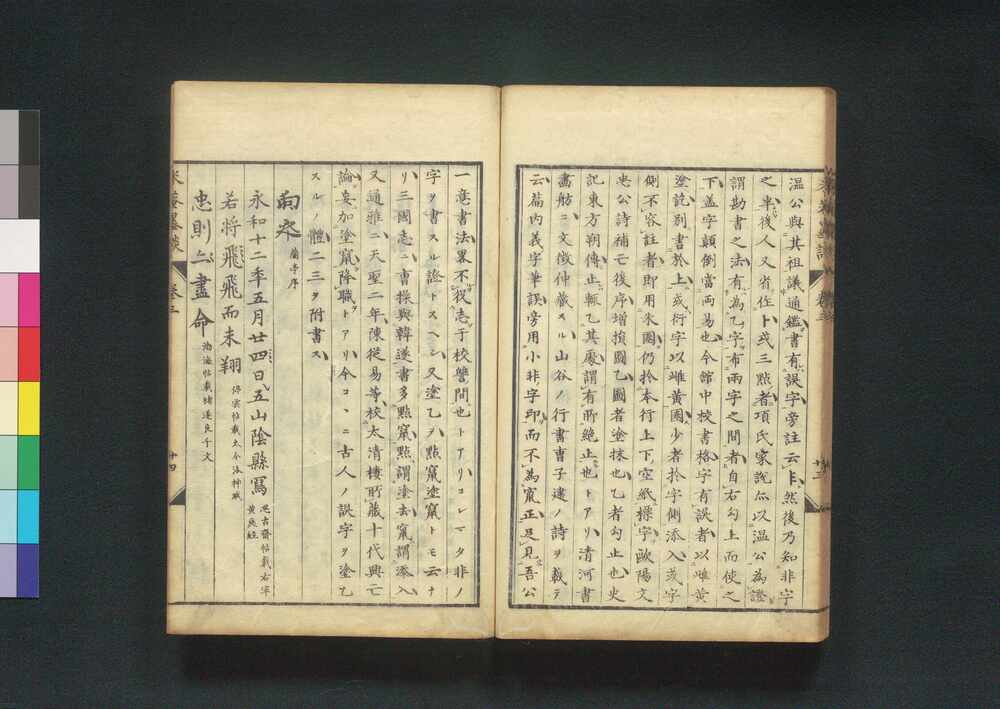 温公與其祖議通鑑書有誤字旁註云卡然後乃知非字
之半後人又省作卜或三點者項氏家說以温公為證
謂勘書之法有為乙字布兩字之間者自右勾上而使之
下盖字顛倒當兩易也今館中校書格字有誤者以雌黄
塗訖別書於上或衍字以雌黄圈少者於字側添入或字
側不容註者即用朱圈仍於本行上下空紙標字歐陽文
忠公詩補亡後序增損圖乙圖者塗抹也乙者勾止也史
記東方朔傳止輒乙其處謂有所絶止也トアリ清河書
畫舫ニ文徴仲蔵スル山谷ノ行書曹子建ノ詩ヲ載テ
云篇内義字筆誤旁用小非字印而不為竄正足見吾公
一意書法畧不投志于校讐間也トアリコレマタ非ノ
字ヲ書スル證トスヘシ又塗乙ヲ點竄塗竄トモ云ナ
リ三國志ニ曹操與韓遂書多點竄點謂塗去竄謂添入
又通雅ニ天聖二年陳從易等校太清樓所蔵十代興亡
論妄加塗竄降職トアリ今コヽニ古人ノ誤字ヲ塗乙
スルノ體二三ヲ附書ス
蘭亭序
永和十二年五月廿四日五山陰縣寫
思古齋帖載右軍
黄庭經
若将飛飛而未翔
停雲帖載大令洛神賦
忠則盡命
渤海帖載褚遂良千文
卷三
十四